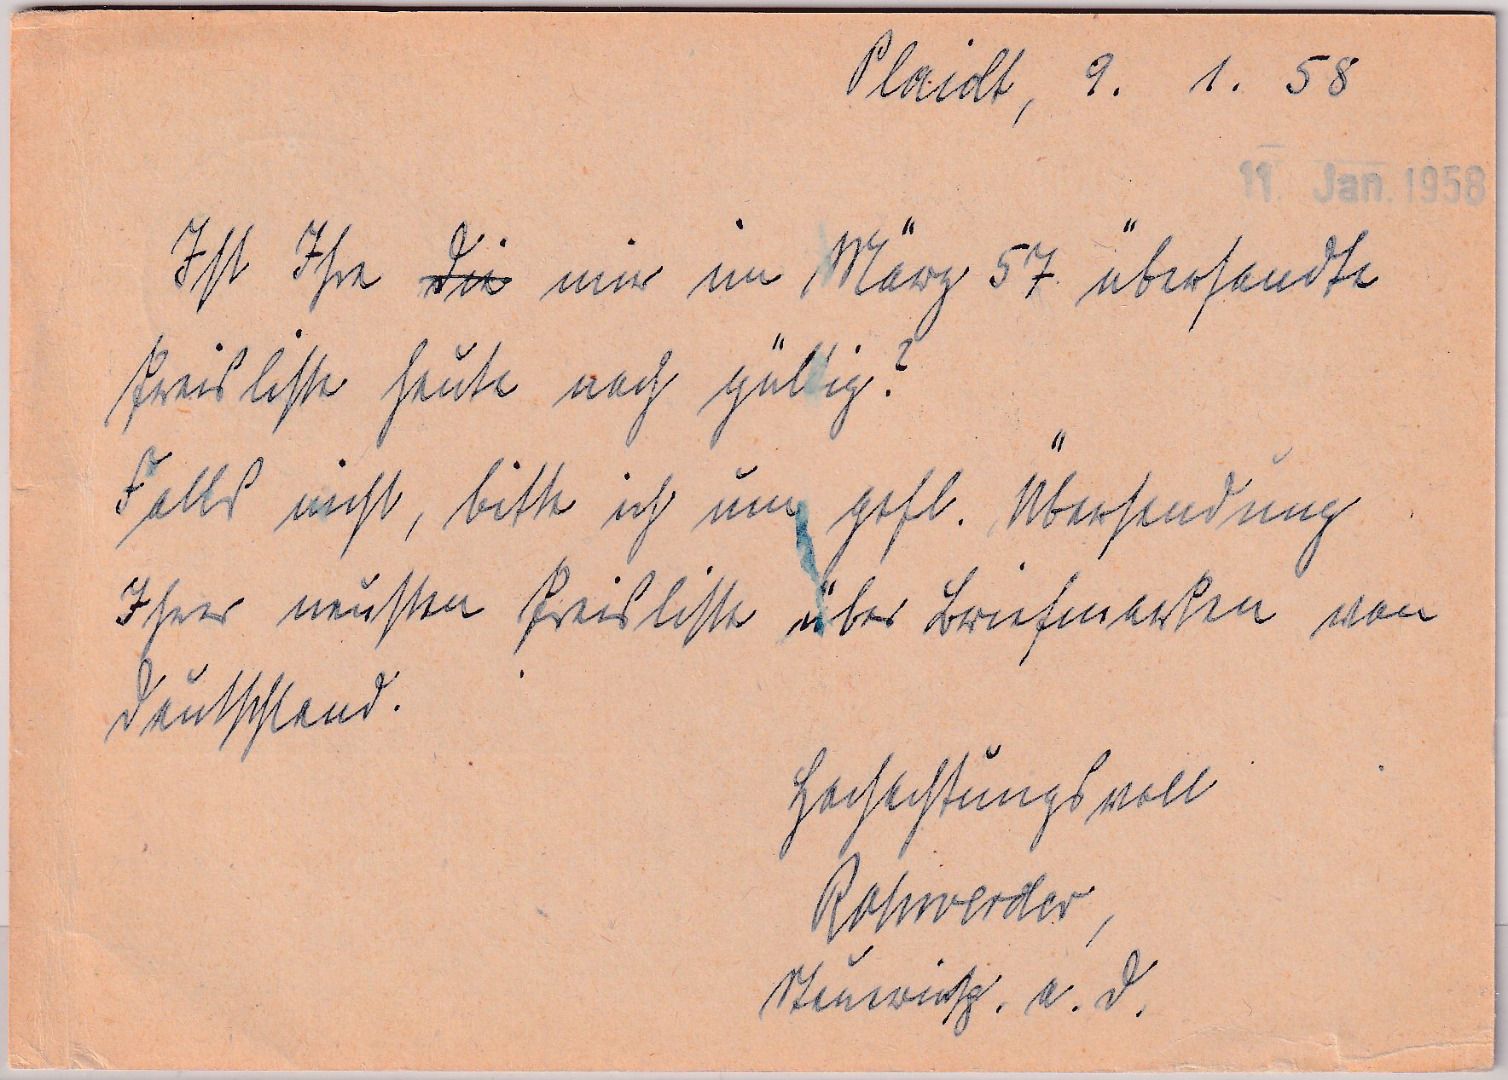 Plaidt, 9. 1. 58
11. Jan. 1958
Ist Ihre die mir im März 57 übersandte
Preisliste heute noch gültig?
Falls nicht, bitte ich um gefl. Übersendung
Ihrer neusten Preisliste über Briefmarken von
Deutschland.
Hochachtungsvoll
a. D.